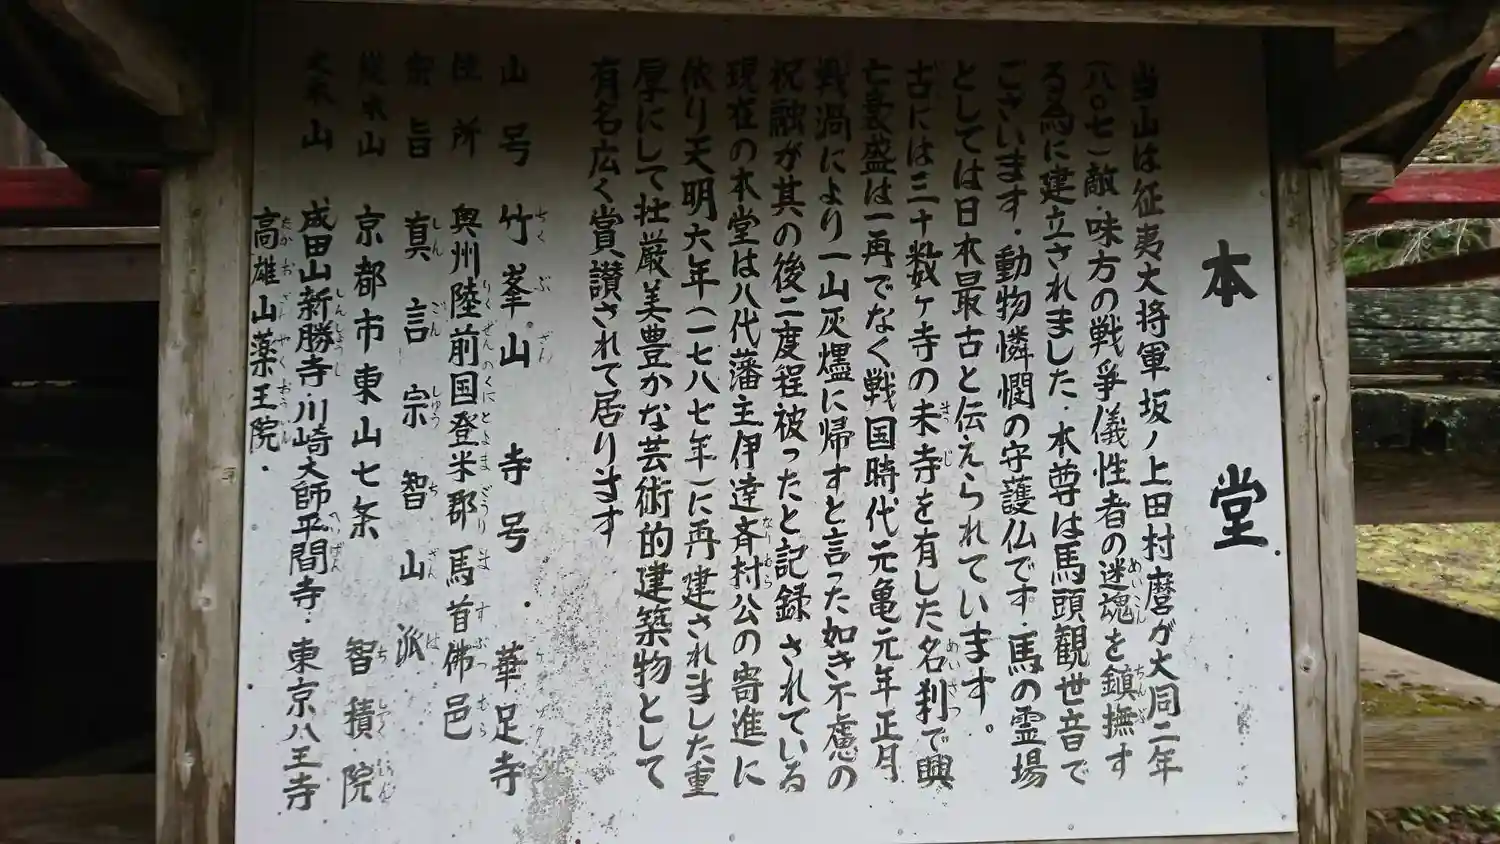 本堂
当山は征夷大将軍坂ノ上田村麿が大同二年
(八〇七)敵・味方の戦争儀性者の迷魂を鎮撫す
る為に建立されました・本尊は馬頭観世音で
ございます・動物憐憫の守護仏です・馬の霊場
としては日本最古と伝えられています。
古には三十数ヶ寺の末寺を有した名刹で興
亡衰盛は一再でなく戦国時代元亀元年正月
戦渦により一山灰燼に帰すと言った如き不慮の
祝融が其の後二度程被ったと記録されている
現在の本堂は八代藩主伊達斉村公の寄進に
依り天明六年(一七八七年)に再建されました重
厚にして壮厳美豊かな芸術的建築物として
有名広く賞讃されて居ります
山号 竹峯山 寺号・華足寺
住所 奥州陸前国登米郡馬首佛邑
宗旨 真言宗智山派
総本山 京都市東山七条 智積院
大本山 成田山新勝寺・川崎大師平間寺・東京八王寺
高雄山薬王院・